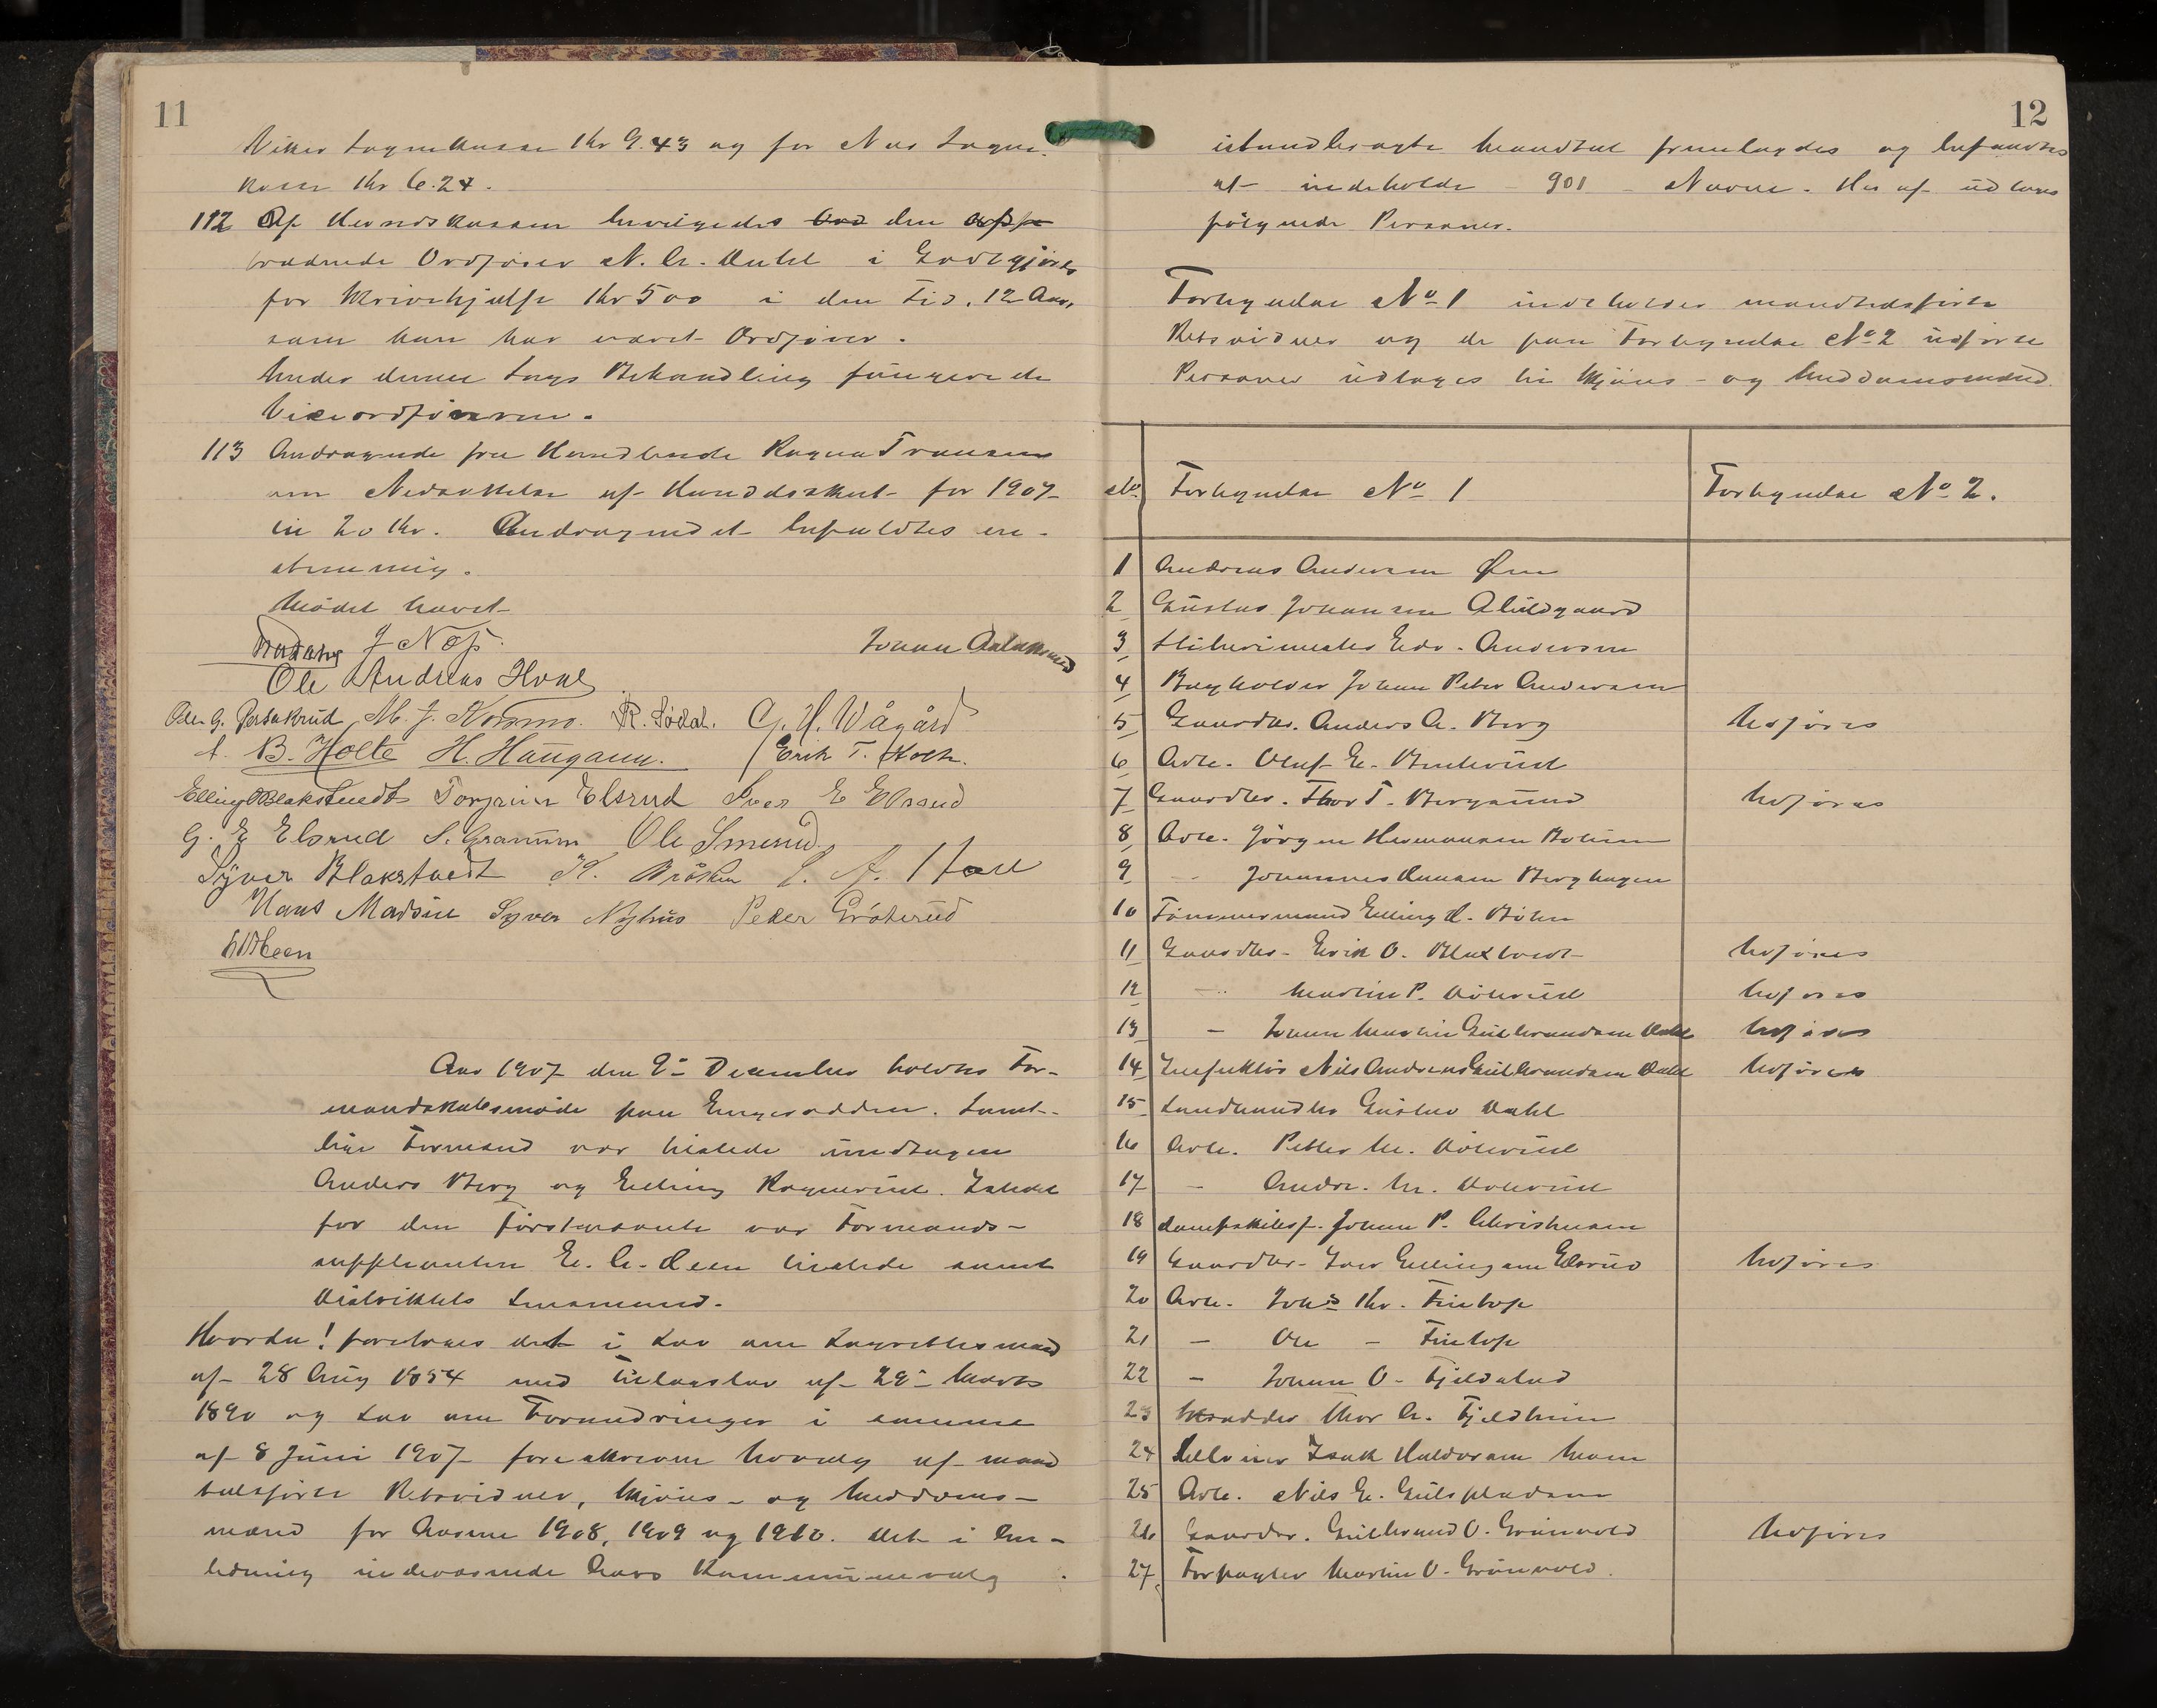 11
Viker Sognekasse Kr 9.43 og for Nes Sogne-
kasse Kr 6.24.
112 Af Herredskassen bevilgedes den
trædende Ordfører N. A. Dahl i Godtgjørelse
for Skrivehjælp Kr 500 i den Tid, 12 Aar,
som han har været Ordfører.
Under denne Sags Behandling fungerede
Viceordføreren.
113 Andragende fra Ragna Fransen
om Nedsættelse af Hundeskat for 1907
til 20 Kr. Andragendet bifaldtes en-
stemmig.
Mødet hævet
J Næss Johan
Ole Andreas Hval
M. J. Kommo. R. Sødal. G. H. Wågård
A. B. Holte H. Haugann. Erik T. Holte.
Elling Blakstvedt Torgrim Elsrud Iver E Elsrud
G. E Elsrud S. Granum Ole Smerud
Syver Blakstvedt H. Bråten
Hans Madsen Syver Nyhus Peder Gråterud
Aar 1907 den 9de December holdtes For-
mandskabsmøde paa Engerodden. Samt-
lige Formænd var tilstede undtagen
Anders Berg og Elling Ragnerud. Istedet
for den førstnævnte var Formands-
suppleanten E. A. Heen tilstede samt
Distriktets Lensmand.
Hvorda! foretoges det i Lov om Lagrettesmænd
af 28 Aug 1854 med Tillægslov af 29de Marts
1890 og Lov om Forandringer i samme
af 8 Juni 1907 foreskrevne Hovedvalg af mand
talsførte Retsvidner, Skjøns- og Meddoms-
mænd for Aarene 1908, 1909 og 1910. Det i An-
ledning indeværende Aars Kommunevalg
12
istandbragte Mandtal fremlagdes og befandtes
at indeholde - 901 - Navne. Her af udtoges
følgende Personer.
Fortegnelse No 1 indeholder mandtalsførte
Retsvidner og de paa Fortegnelse No 2 udførte
Personer udtages til Skjøns- og Meddomsmænd.
No Fortegnelse No 1 Fortegnelse No 2.
1 Andreas Andersen Øen
2 Gustav Johansen Abildgaard
3 Sliberimester Edv. Andersen
4 Bogholder Johan Peter Andersen
5 Gaardbr. Anders A. Berg Udføres
6 Arb. Oluf E. Benterud
7 Gaardbr. Thor T. Bergsund Udføres
8 Arb. Jørgen Hermansen Bottum
9 - Johannes Hansen Berghagen
10 Tømmermand Elling H. Bråten
11 Gaardbr. Erik O. Blakstvedt Udføres
12 - Martin P. Dølerud Udføres
13 - Johan Martin Gulbrandsen Dahl Udføres
14 Inspektør Nils Andreas Gulbrandsen Dahl Udføres
15 Landhandler Gustav Dahl
16 Arb. Petter M. Dølerud
17 - Andr. M. Dølerud
18 Dampskibsf. Johan P. Christensen
19 Gaardbr. Iver Ellingsen Elsrud Udføres
20 Arb. Johs Kr. Finhop
21 - Ole - Finhop
22 - Johan O. Fjeldstad
23 Skrædder Thor A. Fjeldheim
24 Isak Halvorsen Moen
25 Arb. Nils E. Gulspladsen
26 Gaardbr. Gulbrand O. Grønvold Udføres
27 Forpagter Martin O. Grønvold.